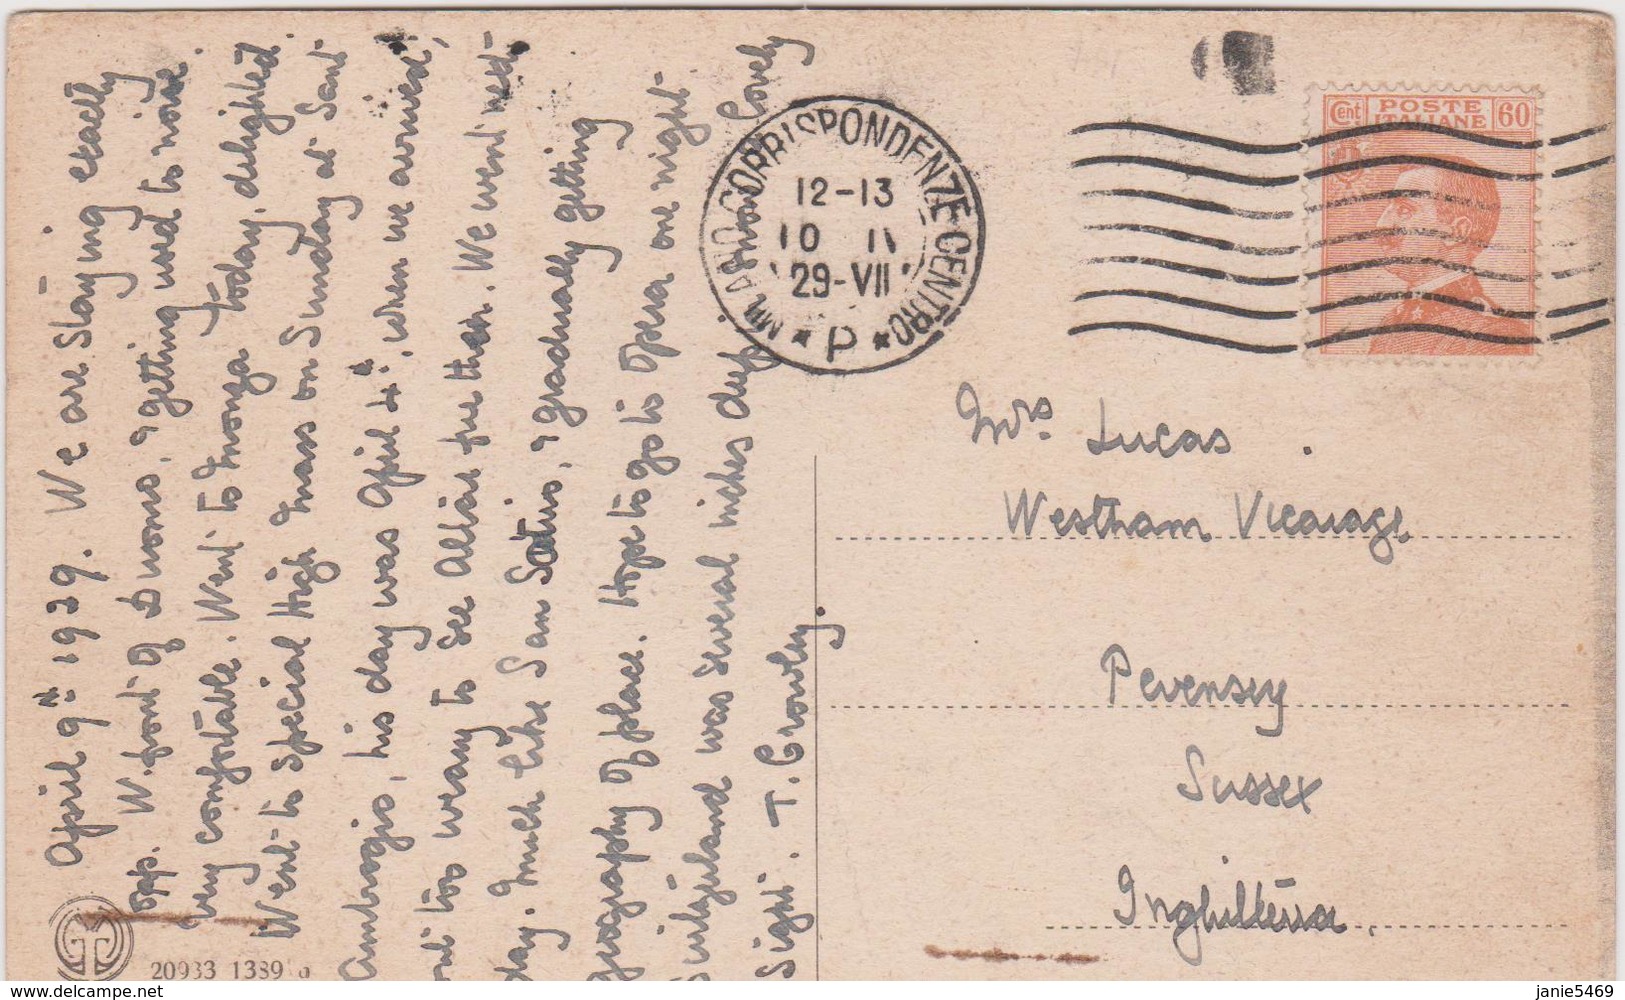 April 9th 1929. We are staying exactly
opp. W. front of Duomo, & getting used to noise
very comfortable. Went to Monza today, delighted.
Went to special High Mass on Sunday at Sant
Ambrogio, his day was April 4th, when we arrived,
too weary to see Altar fire then. We went
day. Much like San Satiro, & gradually getting
geography of place. Hope to go to Opera one night
Switzerland was several inches deep. Lovely
Sight. T. Crowley.
20933 1389 a
MILANO CORRISPONDENZE CENTRO
12-13
10 IV
29-VII
* P *
Cent POSTE ITALIANE 60
Mrs. Lucas
Westham Vicarage
Pevensey
Sussex
Inghilterra.
janie5469